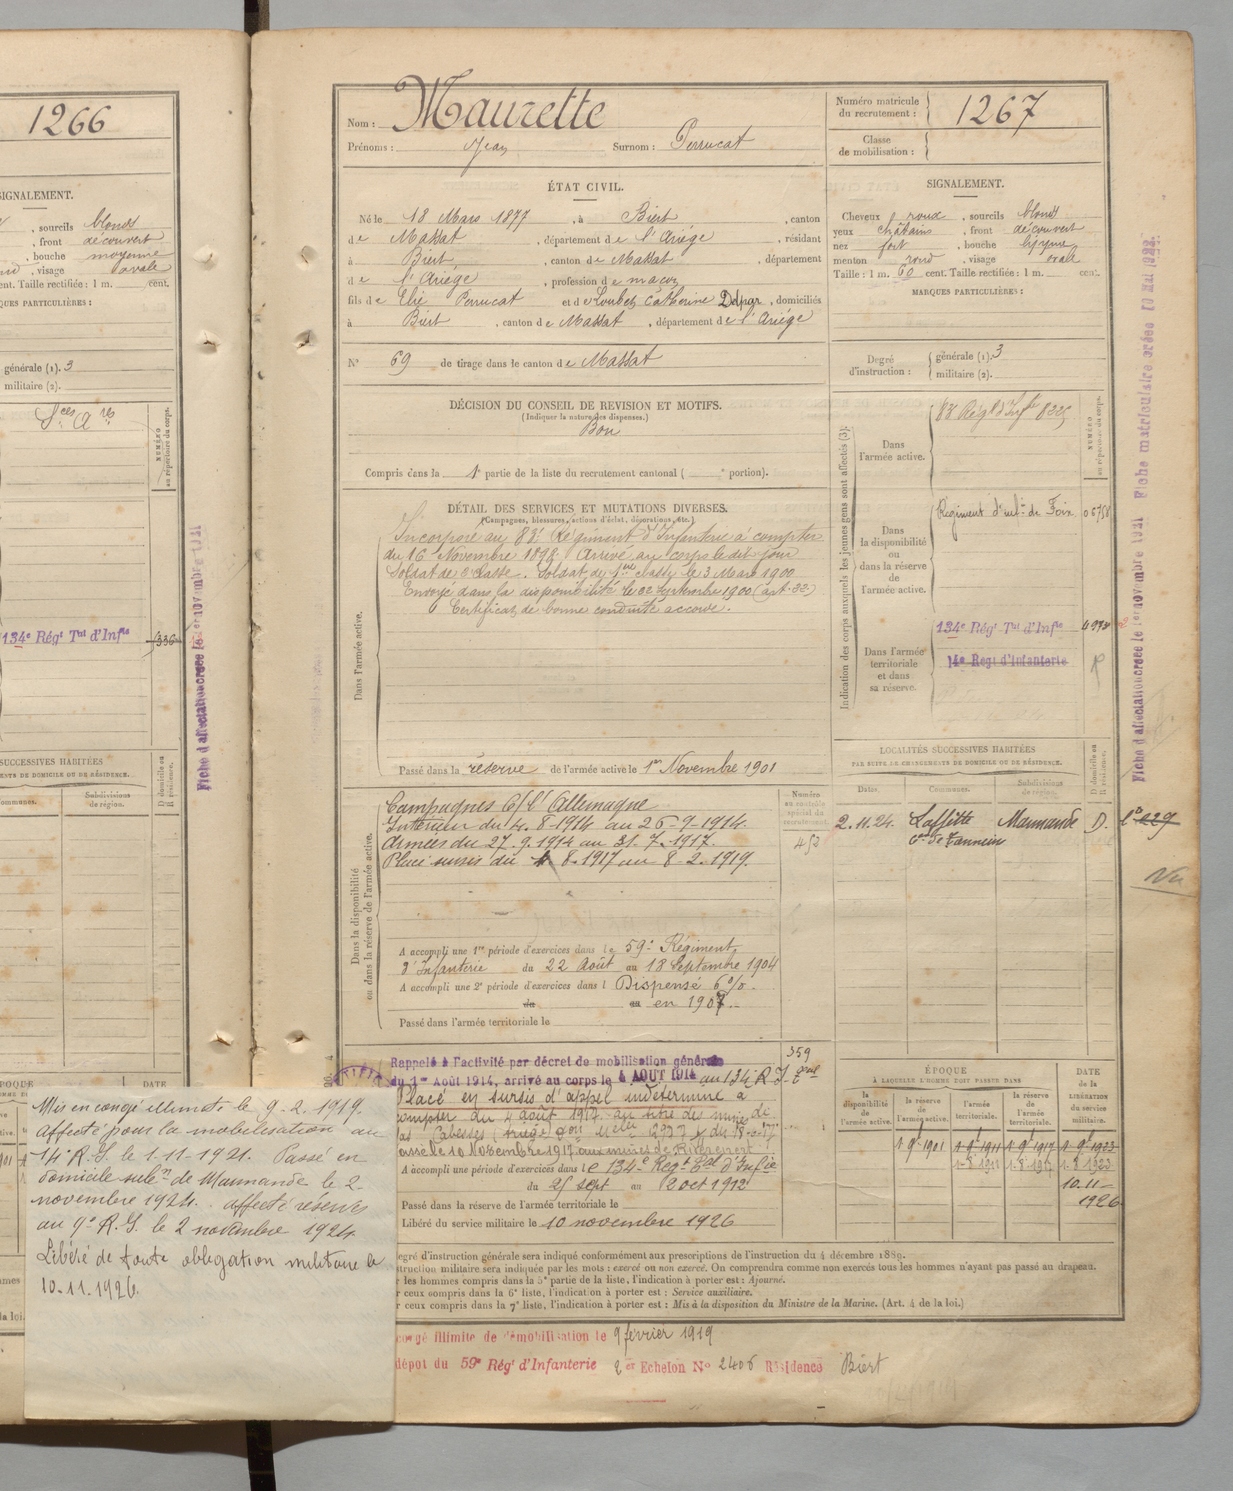 1266
SIGNALEMENT.
, sourcils blonds
, front découvert
, bouche moyenne
, visage ovale
cent. Taille rectifiée : 1 m. cent.
MARQUES PARTICULIÈRES :
générale (1). 3
militaire (2).
NUMÉRO
au répertoire du corps.
134e Régt Tal d'Infie
336
Fiche d'affectation créée le 1er novembre 1921
SUCCESSIVES HABITÉES
CHANGEMENTS DE DOMICILE OU DE RÉSIDENCE.
Communes.
Subdivisions
de région.
D domicile ou
R résidence.
ÉPOQUE
DATE
Nom : Maurette
Prénoms : Jean Surnom : Perrucat
Numéro matricule
du recrutement : 1267
Classe
de mobilisation :
ÉTAT CIVIL.
Né le 18 Mars 1877, à Biert, canton
de Massat, département de l'Ariége, résidant
à Biert, canton de Massat, département
de l'Ariége, profession de maçon
fils de Elie Perrucat et de Loubet Catherine, domiciliés
à Biert, canton de Massat, département de l'Ariége
SIGNALEMENT.
Cheveux roux, sourcils blonds
yeux châtains, front découvert
nez fort, bouche moyenne
menton rond, visage ovale
Taille : 1 m. 60 cent. Taille rectifiée : 1 m. cent.
MARQUES PARTICULIÈRES :
N° 69 de tirage dans le canton de Massat
Degré
d'instruction :
générale (1). 3
militaire (2).
DÉCISION DU CONSEIL DE REVISION ET MOTIFS.
(Indiquer la nature des dispenses.)
Bon
Compris dans la 1e partie de la liste du recrutement cantonal ( e portion).
DÉTAIL DES SERVICES ET MUTATIONS DIVERSES.
(Campagnes, blessures, actions d'éclat, décorations, etc.)
Dans l'armée active.
Incorporé au 83e Régiment d'Infanterie à compter
du 16 Novembre 1898. Arrivé au corps le dit jour
Soldat de 2e classe. Soldat de 1re classe le 3 Mars 1900
Envoyé dans la disponibilité le 22 septembre 1900 (art. 22)
Certificat de bonne conduite accordé.
Passé dans la réserve de l'armée active le 1er Novembre 1901
Indication des corps auxquels les jeunes gens sont affectés (3).
Dans
l'armée active.
83e Régt d'Infie
NUMÉRO
au répertoire du corps.
Dans
la disponibilité
ou
dans la réserve
de
l'armée active.
Régiment d'infie de Foix
Dans l'armée
territoriale
et dans
sa réserve.
134e Régt Tal d'Infie
14e Régt d'Infanterie
Fiche d'affectation créée le 1er novembre 1921 Fiche matriculaire créée 10 Mai 1922.
Dans la disponibilité
ou dans la réserve de l'armée active.
Campagnes C/ l'Allemagne
Intérieur du 4. 8-1914 au 26-9-1914.
Armées du 27. 9. 1914 au 31. 7. 1917.
Placé sursis du 1. 8. 1917 au 8-2. 1919.
Numéro
au contrôle
spécial du
recrutement.
A accompli une 1re période d'exercices dans le 59e Régiment
d'Infanterie du 22 Août au 18 Septembre 1904
A accompli une 2e période d'exercices dans l Dispensé 6 %.
du au en 1907.
Passé dans l'armée territoriale le
LOCALITÉS SUCCESSIVES HABITÉES
PAR SUITE DE CHANGEMENTS DE DOMICILE OU DE RÉSIDENCE.
Dates.
Communes.
Subdivisions
de région.
D domicile ou
R résidence.
2. 11. 24. Laffitte Marmande D.
Vu
Rappelé à l'activité par décret de mobilisation générale
du 1er Août 1914, arrivé au corps le 4 AOUT 1914 au 134e R I Tal
359
Placé en sursis d'appel indéterminé à
compter du 4 août 1917 au titre de mines de
Las Cabesses
passé le 10 Novembre 1917 aux mines de
A accompli une période d'exercices dans le 134e Regt Tal d'Infie
du 25 sept au 2 oct 1912
Passé dans la réserve de l'armée territoriale le
Libéré du service militaire le 10 novembre 1926
ÉPOQUE
À LAQUELLE L'HOMME DOIT PASSER DANS
DATE
de la
LIBÉRATION
du service
militaire.
la
disponibilité
de
l'armée active.
la réserve
de
l'armée active.
l'armée
territoriale.
la réserve
de
l'armée
territoriale.
1-9-1901 1-9-1911 1-9-1917 1-9-1923
1-8-1911 1-8-1917 1-8-1923
10-11-
1926
Mis en congé illimité le 9. 2. 1919.
Affecté pour la mobilisation au
14e R. I. le 1-11-1921. Passé en
domicile subn de Marmande le 2
novembre 1924. affecté réserves
au 9e R. I. le 2 novembre 1924
Libéré de toute obligation militaire le
10. 11. 1926.
degré d'instruction générale sera indiqué conformément aux prescriptions de l'instruction du 4 décembre 1889.
instruction militaire sera indiquée par les mots : exercé ou non exercé. On comprendra comme non exercés tous les hommes n'ayant pas passé au drapeau.
r les hommes compris dans la 5e partie de la liste, l'indication à porter est : Ajourné.
r ceux compris dans la 6e liste, l'indication à porter est : Service auxiliaire.
r ceux compris dans la 7e liste, l'indication à porter est : Mis à la disposition du Ministre de la Marine. (Art. 4 de la loi.)
congé illimité de démobilisation le 9 février 1919
dépôt du 59e Régt d'Infanterie 2 er Echelon N° 2406 Résidence Biert